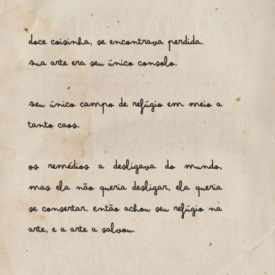 doce coisinha, se encontrava perdida.
sua arte era seu único consolo.
seu único campo de refúgio em meio a
tanto caos.
os remédios a desligava do mundo,
mas ela não queria desligar, ela queria
se consertar, então achou seu refúgio na
arte, e a arte a salvou.